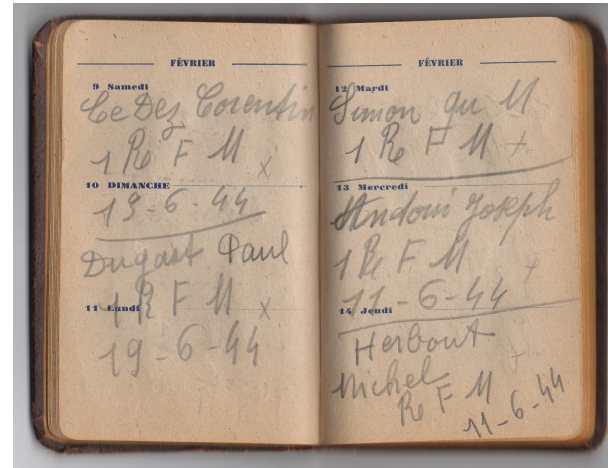 FÉVRIER
9 Samedi
Le Dez Corentin
1 R F M x
10 DIMANCHE
19-6-44
Dugast Paul
11 Lundi
1 R F M x
19-6-44
FÉVRIER
12 Mardi
Simon qu M
1 R F M +
13 Mercredi
Andoui Joseph
1 R F M +
11-6-44
14 Jeudi
Herbout +
Michel
R F M 11-6-44